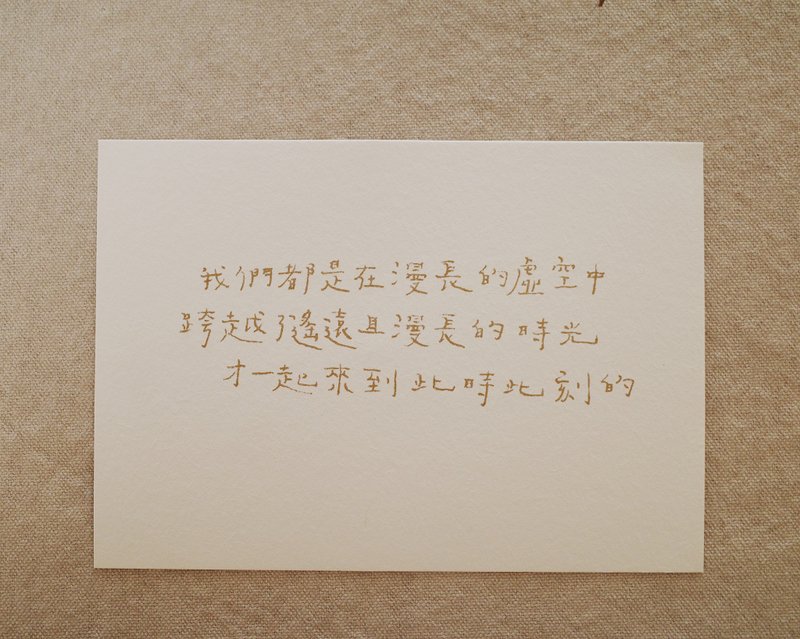 我們都是在漫長的虛空中
跨越了遙遠且漫長的時光
才一起來到此時此刻的